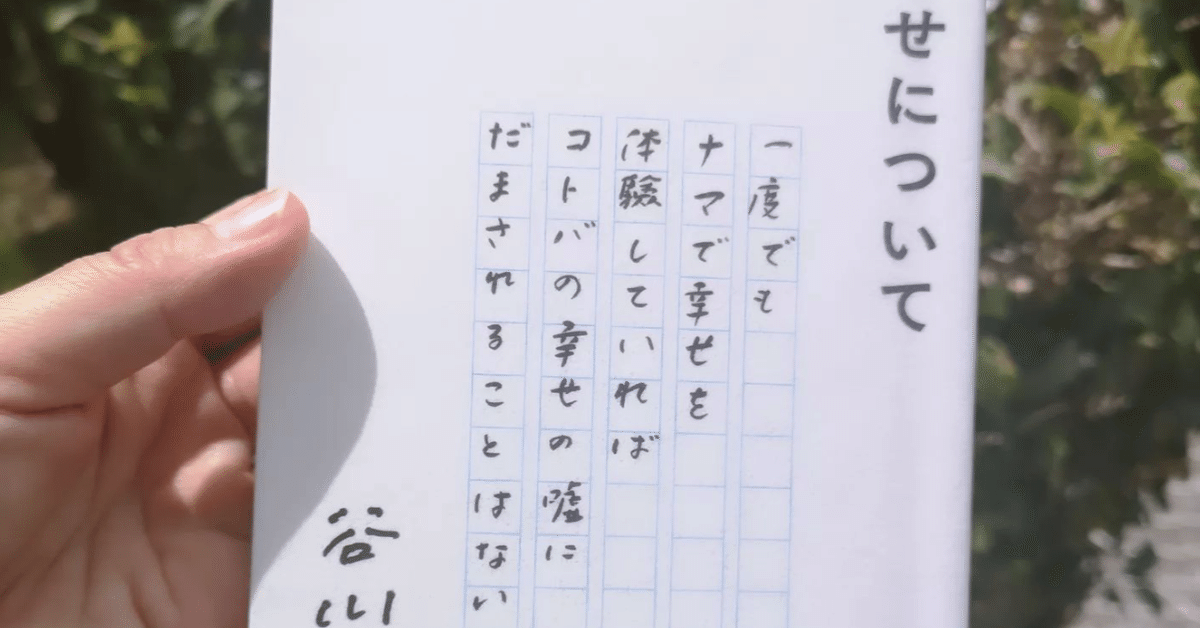 せについて
一度でも
ナマで幸せを
体験していれば
コトバの幸せの嘘に
だまされることはない
谷川